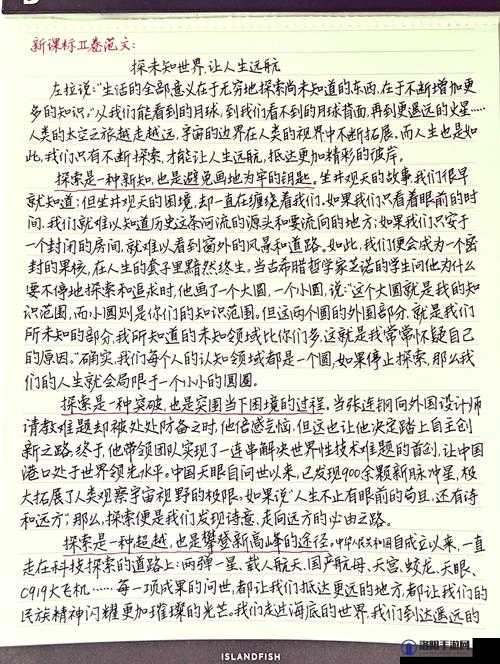 新课标Ⅱ卷范文:
探未知世界,让人生远航
左拉说:"生活的全部意义在于无穷地探索尚未知道的东西,在于不断增加更
多的知识。"从我们能看到的月球,到我们看不到的月球背面,再到更遥远的火星……
人类的太空之旅越走越远,宇宙的边界在人类的视界中不断拓展。而人生也是如
此,我们只有不断探索,才能让人生远航,抵达更加精彩的彼岸。
探索是一种新知,也是避免画地为牢的钥匙。坐井观天的故事我们很早
就知道;但坐井观天的困境,却一直在缠绕着我们。如果我们只看着眼前的时
间,我们就难以知道历史这条河流的源头和要流向的地方;如果我们只安于
一个封闭的房间,就难以看到窗外的风景和道路。如此,我们便会成为一个密
封的果核,在人生的套子里黯然终生。当古希腊哲学家芝诺的学生问他为什么
要不停地探索和追求时,他画了一个大圆,一个小圆,说:"这个大圆就是我的知
识范围,而小圆则是你们的知识范围。但这两个圆的外围部分,就是我们
所未知的部分,我所知道的未知领域比你们多,这就是我常常怀疑自己
的原因。"确实,我们每个人的认知领域都是一个圆,如果停止探索,那么我
们的人生就会局限于一个小小的圆圈。
探索是一种突破,也是突围当下困境的过程。当张连钢向外国设计师
请教难题却被处处防备之时,他倍感气恼,但这也让他决定踏上自主创
新之路,终于,他带领团队实现了一连串解决世界性技术难题的首创,让中国
港口处于世界领先水平。中国天眼自问世以来,已发现900余颗新脉冲星,极
大拓展了人类观察宇宙视野的极限。如果说"人生不止有眼前的苟且,还有诗
和远方",那么,探索便是我们发现诗意、走向远方的必由之路。
探索是一种超越,也是攀登新高峰的途径。中华人民共和国自成立以来,一直
走在科技探索的道路上:两弹一星、载人航天、国产航母、天宫、蛟龙、天眼、
C919大飞机……每一项成果的问世,都让我们抵达更远的地方,都让我们的
民族精神闪耀更加璀璨的光芒。我们走进海底的世界,我们到达遥远的
ISLANDFISH